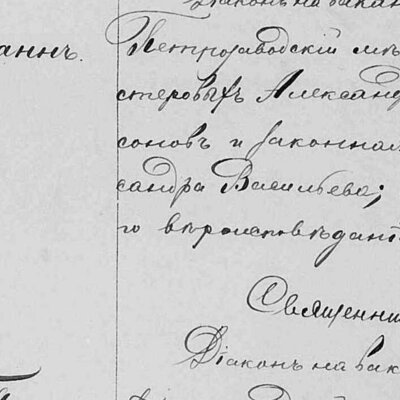 Діаконъ на вакан
аннъ.
Петрозаводскій мѣ
стеровыхъ Александ
соновъ и законная
сандра Васильева;
го вѣроисповѣдані
Священни
Діаконъ на вак